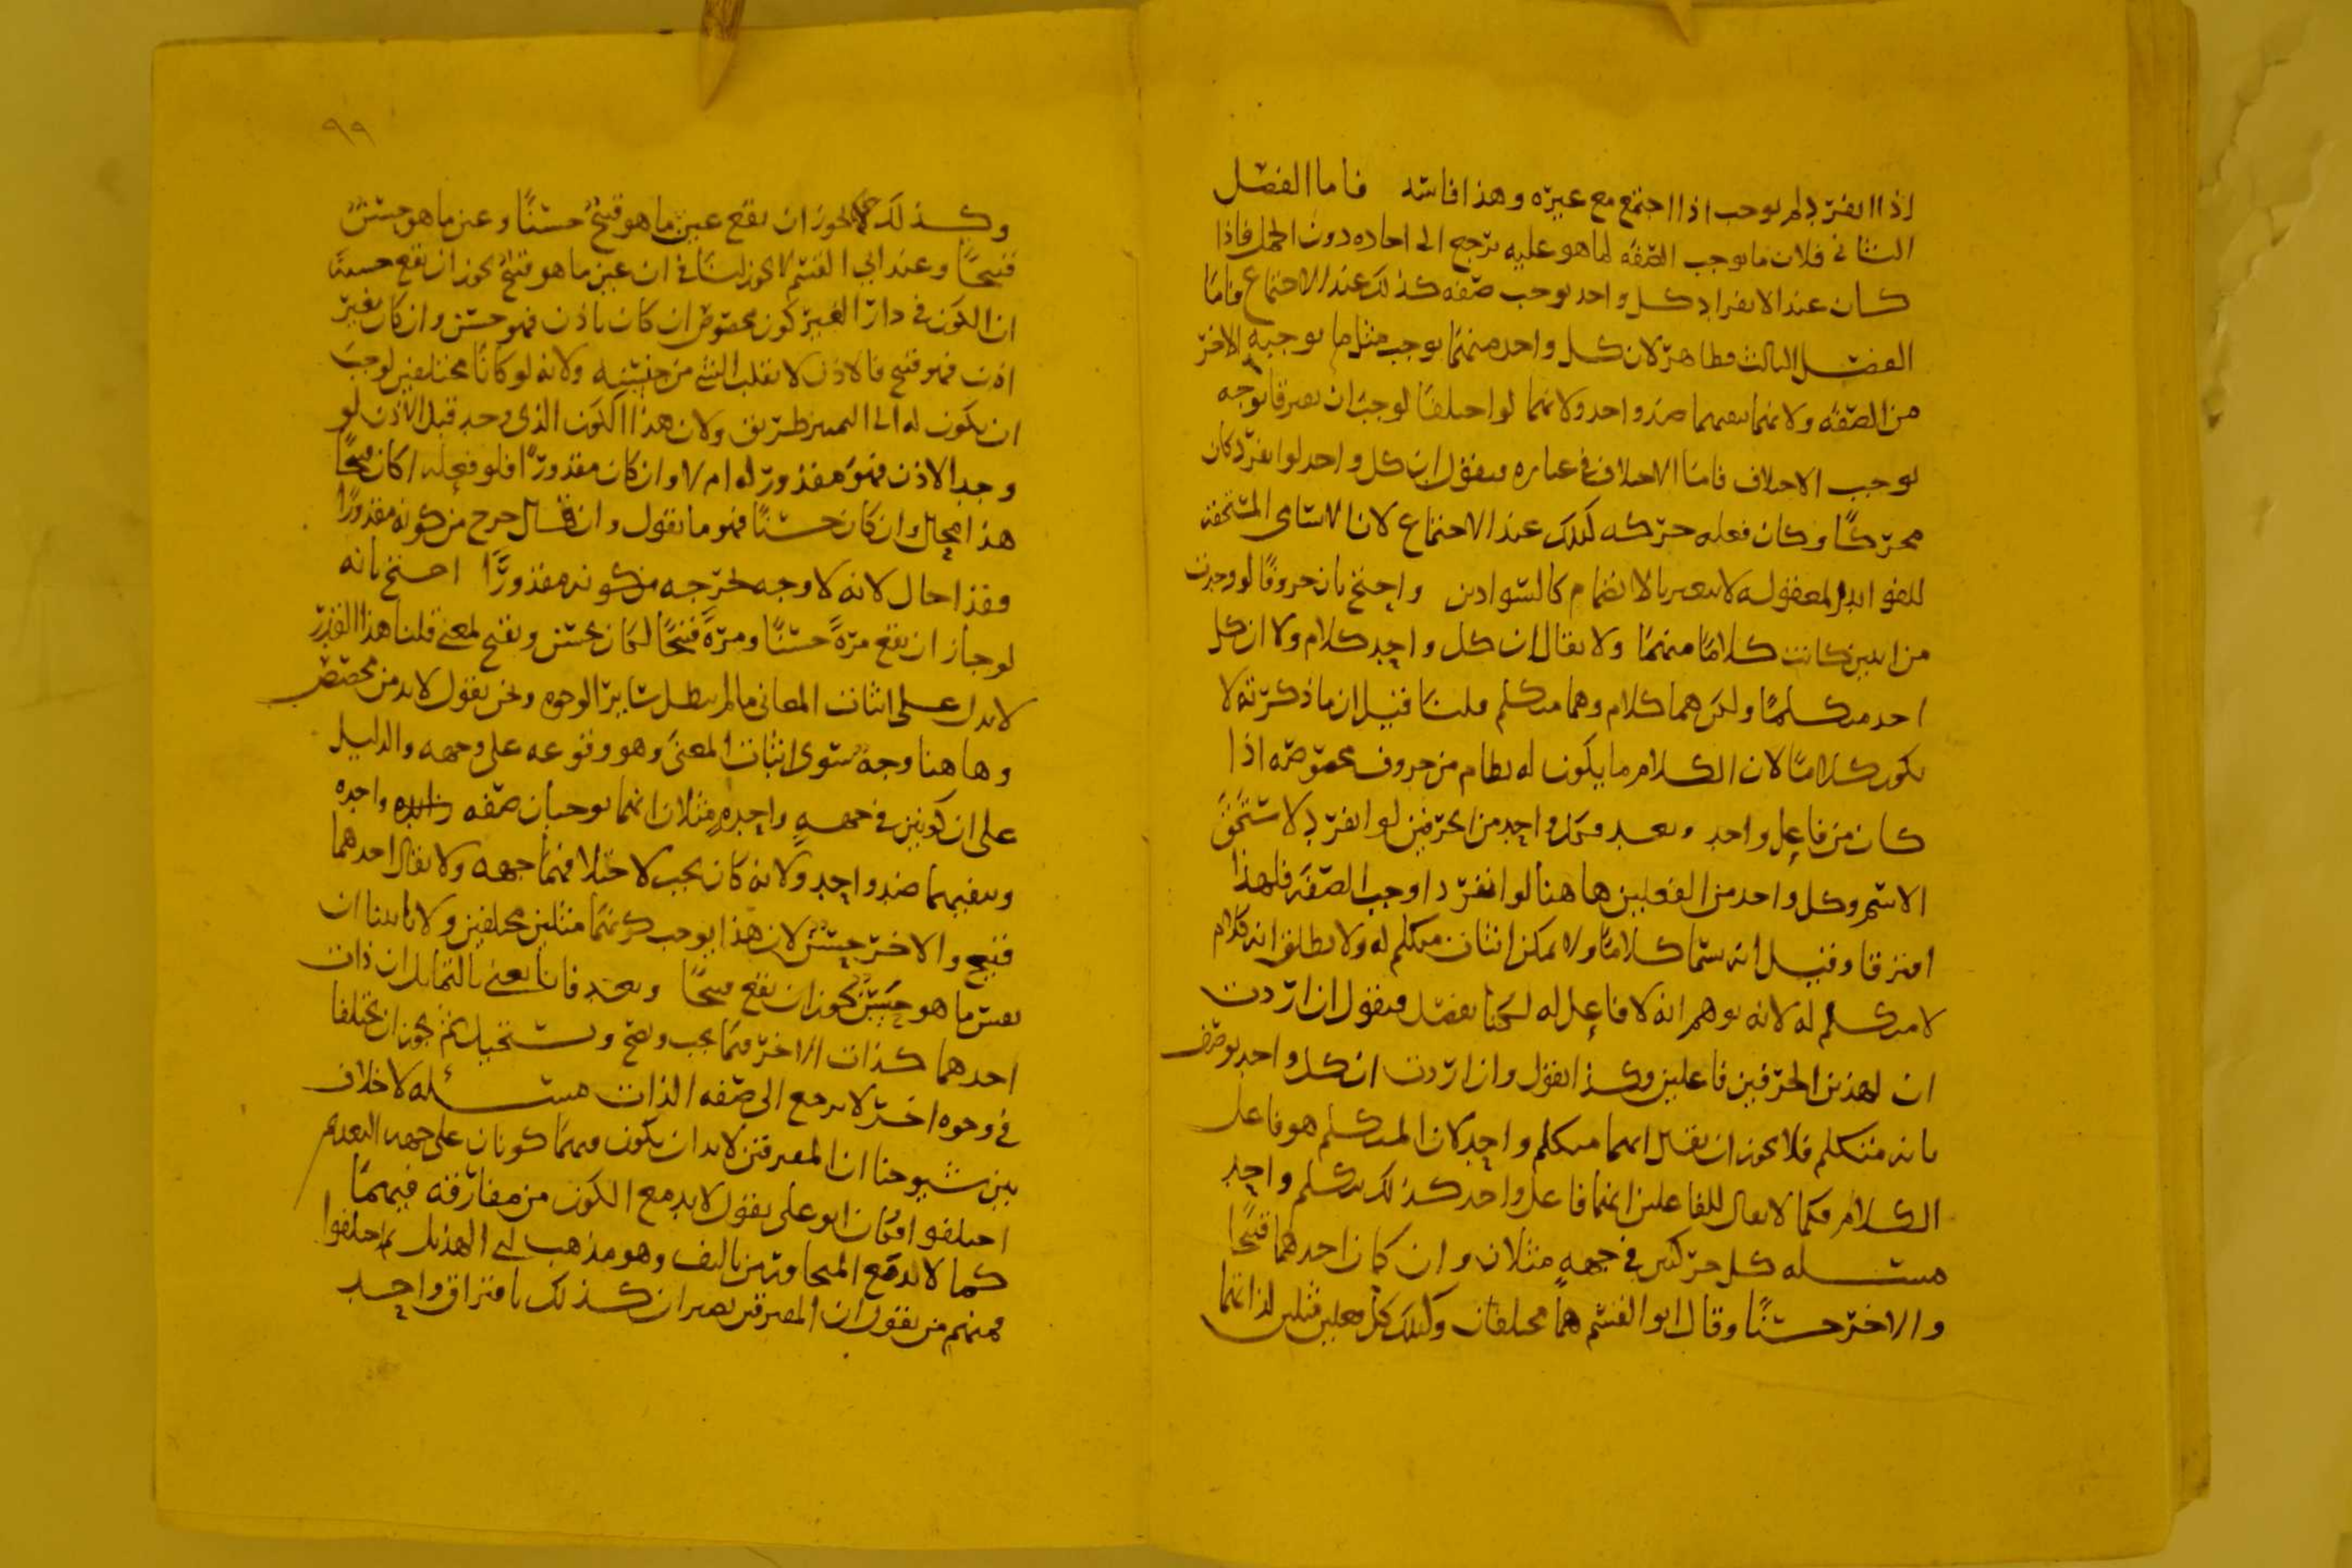 اذا انفرد لم يوجب اذا اجتمع مع غيره وهذا فاسد فاما الفصل
الثاني فلان ما يوجب الصفة لما هو عليه يرجع الى احاده دون الجمل فاذا
كان عند الانفراد كل واحد يوجب صفه كذلك عند الاجتماع فاما
الفصل الثالث فظاهر لان كل واحد منهما يوجب مثل ما يوجبه الاخر
من الصفه ولانهما ينفيهما ضد واحد ولانهما لو اختلفا لوجب ان يفترقا بوجه
يوجب الاختلاف فاما الاختلاف في عباره فنقول ان كل واحد لو انفرد كان
محركا وكان فعله حركه كذلك عند الاجتماع لان الاسامي المستحقه
للفوايد المعقوله لا يتغير بالانضمام كالسوادين واحتج بان حروفا لو وجدت
من اثنين كانت كلاما منهما ولا يقال ان كل واحد كلام ولا ان كل
احد متكلما ولكن هما كلام وهما متكلم قلنا قيل ان ما ذكرته لا
يكون كلاما لان الكلام ما يكون له نظام من حروف مخصوصه اذا
كان من فاعل واحد وبعد فكل واحد من الحرفين لو انفرد لا يستحق
الاسم وكل واحد من الفعلين هاهنا لو انفرد اوجب الصفه فلهذا
افترقا وقيل انه يسما كلاما ولا يمكن اثبات متكلم له ولا يطلق انه كلام
لا متكلم له لانه يوهم انه لا فاعل له لكنا نفصل فنقول ان اردت
ان لهذين الحرفين فاعلين وكذا نقول وان اردت ان كل واحد يوصف
بانه متكلم فلا يجوز ان يقال انهما متكلم واحد لان المتكلم هو فاعل
الكلام فكما لا يقال للفاعلين انهما فاعل واحد كذلك متكلم واحد
مسئله كل حركتين في جهه مثلان وان كان احدهما قبيحا
والاخر حسنا وقال ابو القسم هما مختلفان وكذلك كل فعلين مثلين لذاتهما
٩٩
وكذلك يجوز ان يقع عين ما هو قبيح حسنا وعين ما هو حسن
قبيحا وعند ابي القسم لا يجوز لنا في ان عين ما هو قبيح يجوز ان يقع حسنه
ان الكون في دار الغير كون مخصوص ان كان باذن فهو حسن وان كان بغير
اذن فهو قبيح فالاذن لا يقلب الشي من جنسه ولانه لو كانا مختلفين لوجب
ان يكون له الى التمييز طريق ولان هذا الكون الذي وجد قبل الاذن لو
وجد الاذن فهو مقدور له ام لا وان كان مقدورا فلو فعله اكان قبيحا
هذا محال وان كان حسنا فهو ما نقول وان قال خرج من كونه مقدورا
فقد احال لانه لا وجه يخرجه من كونه مقدورا احتج بانه
لو جاز ان يقع مرة حسنا ومرة قبيحا لكان يحسن ويقبح لمعنى قلنا هذا القدر
لا يدل على اثبات المعاني ما لم يبطل ساير الوجوه ونحن نقول لا بد من مخصص
وهاهنا وجه سوى اثبات المعنى وهو وقوعه على وجهه والدليل
على ان كونين في جهه واحده مثلان انهما يوجبان صفه واحده
وينفيهما ضد واحد ولانه كان يجب لاختلافهما جهه ولا يقال احدهما
قبيح والاخر حسن لان هذا يوجب كونهما مثلين مختلفين ولانا بينا ان
نفس ما هو حسن يجوز ان يقع قبيحا وبعد فانا نعني بالتماثل ان ذات
احدهما كذات الاخر فيما يجب ويصح ويستحيل ثم يجوز ان يختلفا
في وجوه اخر لا يرجع الى صفه الذات مسئله لا خلاف
بين شيوخنا ان المفترقين لا بد ان يكون فيهما كونان على جهه البعد ثم
اختلفوا فكان ابو علي يقول لا بد مع الكون من مفارقه فيهما
كما لا بد مع المجاورتين تاليف وهو مذهب ابي الهذيل ثم اختلفوا
فمنهم من يقول ان المفترقين يصيران كذلك بافتراق واحد